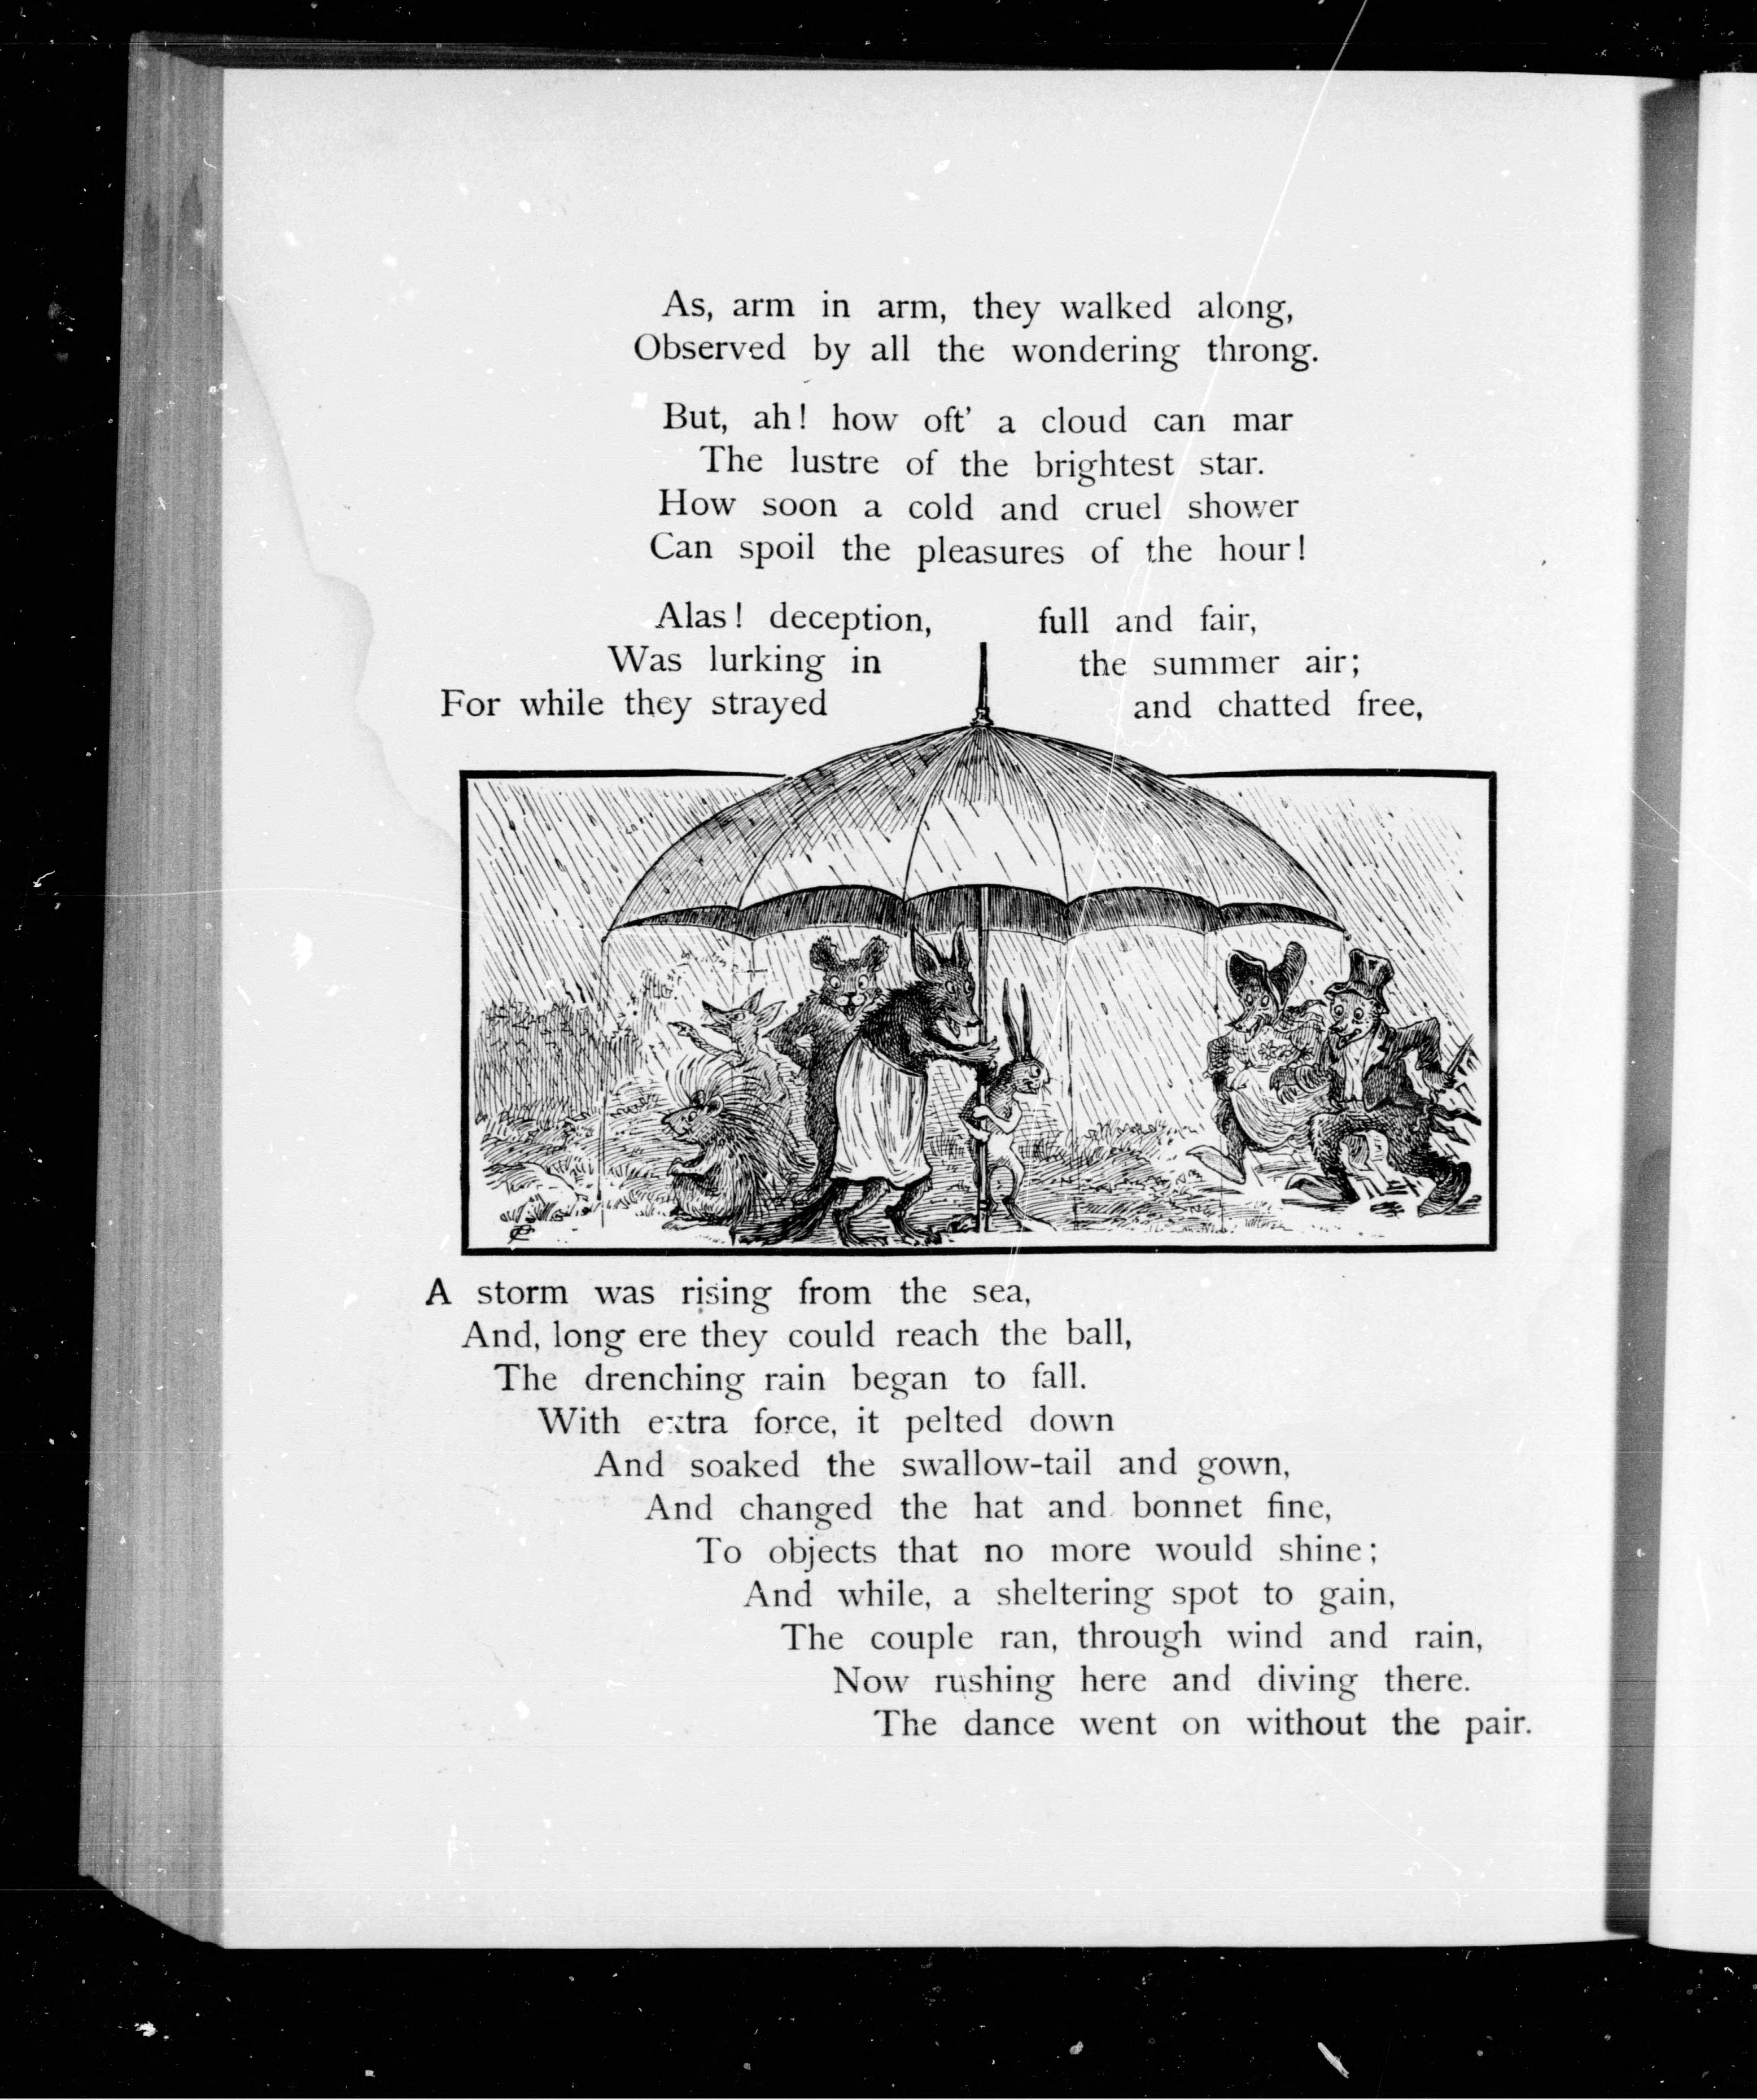 As, arm in arm, they walked along,
Observed by all the wondering throng.
But, ah! how oft' a cloud can mar
The lustre of the brightest star.
How soon a cold and cruel shower
Can spoil the pleasures of the hour!
Alas! deception, full and fair,
Was lurking in the summer air;
For while they strayed and chatted free,
A storm was rising from the sea,
And, long ere they could reach the ball,
The drenching rain began to fall.
With extra force, it pelted down
And soaked the swallow-tail and gown,
And changed the hat and bonnet fine,
To objects that no more would shine;
And while, a sheltering spot to gain,
The couple ran, through wind and rain,
Now rushing here and diving there.
The dance went on without the pair.